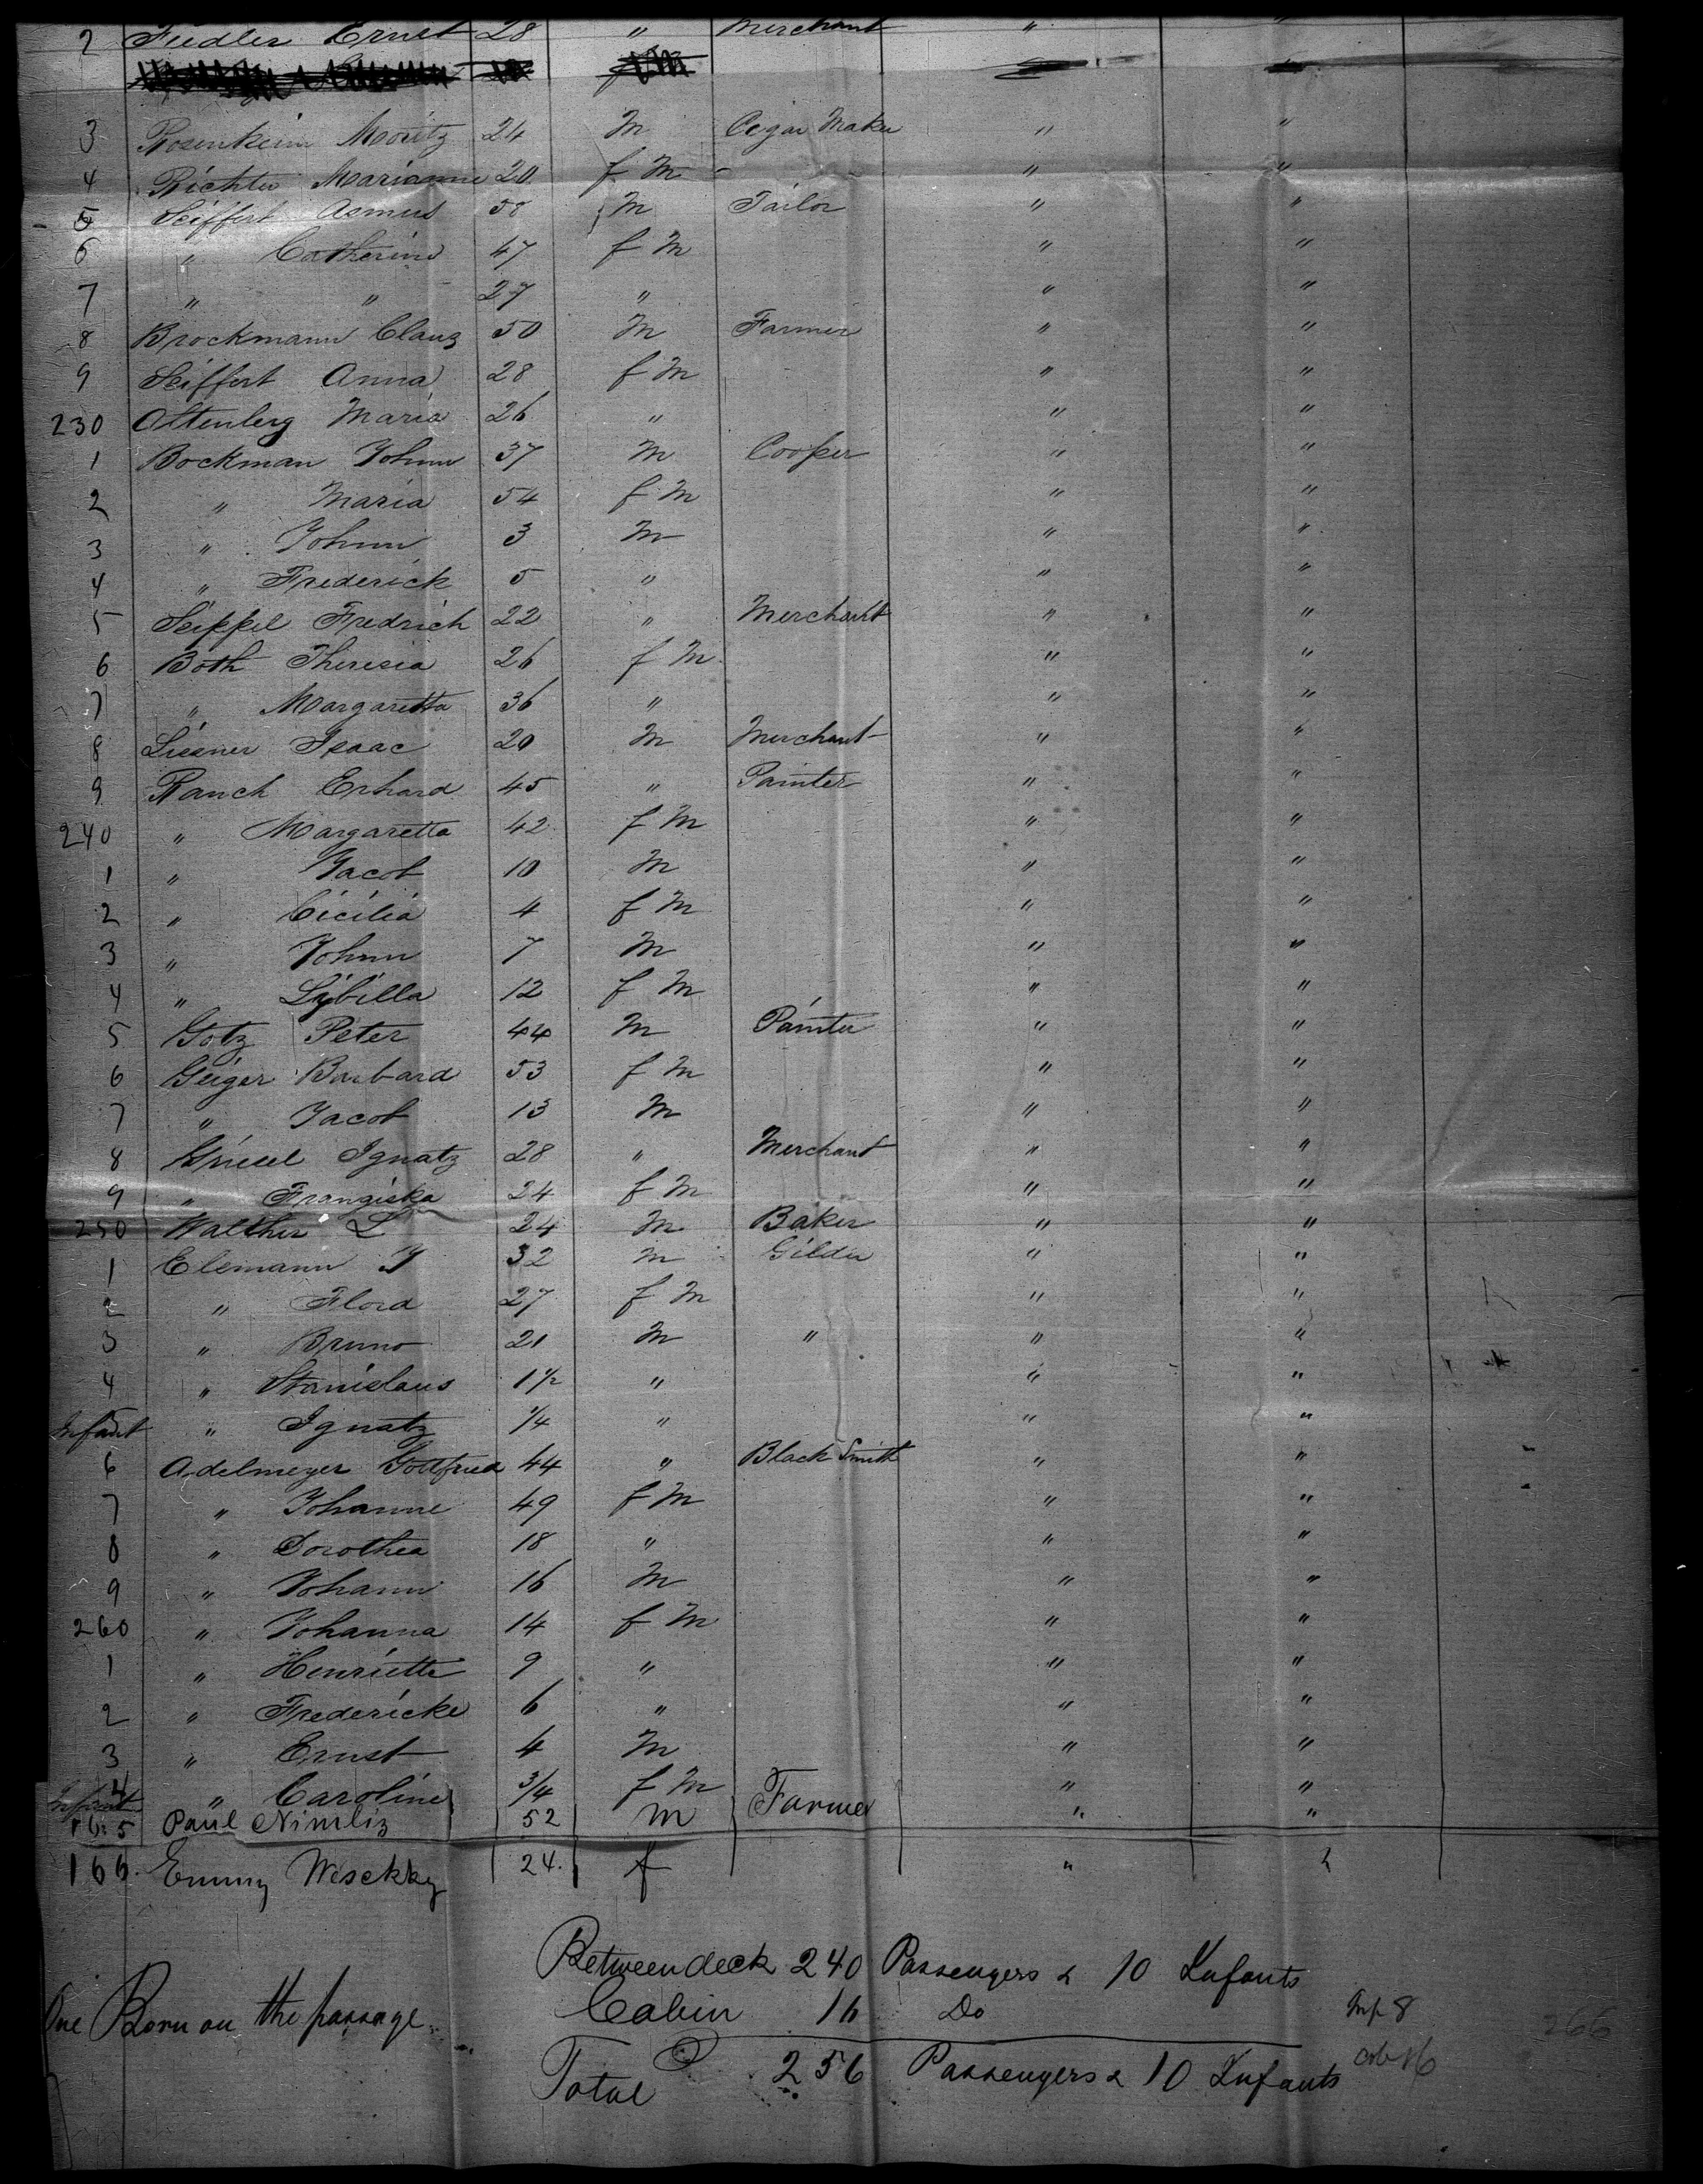 2 Fiedler Ernst 28 " Merchant " "
3 Rosenheim Moritz 24 M Cegar Maker " "
4 Richter Marianne 20 f M - " "
5 Seiffert Asmus 58 M Tailor " "
6 " Catherine 47 f M " "
7 " " 27 " " "
8 Brockmann Claus 50 M Farmer " "
9 Seiffert Anna 28 f M " "
230 Altenberg Maria 26 " " "
1 Bockman Johnn 37 M Cooper " "
2 " Maria 54 f M " "
3 " Johnn 3 M " "
4 " Frederick 5 " " "
5 Seippel Fredrich 22 " Merchant " "
6 Both Theresia 26 f M " "
7 " Margaretta 36 " " "
8 Liesner Isaac 20 M Merchant " "
9 Ranch Erhard 45 " Painter " "
240 " Margaretta 42 f M " "
1 " Jacob 10 M " "
2 " Cicilia 4 f M " "
3 " Johnn 7 M " "
4 " Sybilla 12 f M " "
5 Gotz Peter 44 M Painter " "
6 Geiger Barbard 53 f M " "
7 " Jacob 13 M " "
8 Ignatz 28 " Merchant " "
9 " Franziska 24 f M " "
250 Walther L 24 M Baker " "
1 Elemann J 32 M Gilder " "
2 " Flord 27 f M " "
3 " Bruno 21 M " " "
4 " Stanislaus 1 1/2 " " "
5 Infant " Ignatz 1/4 " " "
6 Adelmeyer Gottfried 44 " Black Smith " "
7 " Johanne 49 f M " "
8 " Dorothea 18 " " "
9 " Johann 16 M " "
260 " Johanna 14 f M " "
1 " Henriette 9 " " "
2 " Fredericke 6 " " "
3 " Ernst 4 M " "
4 Infant " Caroline 3/4 f M " "
165 Paul Nimliz 52 M Farmer " "
166. Emmy Wesekky 24. f " "
Betweendeck 240 Passengers & 10 Infants
One Born on the passage. Cabin 16 Do Inf 8
266
Total 256 Passengers & 10 Infants cab 16